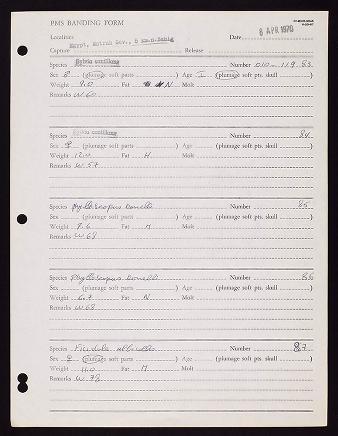 PMS BANDING FORM
Localities
Egypt, Matruh Gov., 5 km S. Bahig
Date 8 APR 1970
Capture Release
Species Sylvia cantillans Number 010- 119 83
Sex ♂ (plumage soft parts ) Age I (plumage soft pts. skull )
Weight 9.0 Fat N Molt
Remarks W.60
Species Sylvia cantillans Number 84
Sex ♀ (plumage soft parts ) Age (plumage soft pts. skull )
Weight 12.0 Fat H Molt
Remarks W.57
Species Phylloscopus bonelli Number 85
Sex (plumage soft parts ) Age (plumage soft pts. skull )
Weight 7.6 Fat M Molt
Remarks W.63
Species Phylloscopus bonelli Number 86
Sex (plumage soft parts ) Age (plumage soft pts. skull )
Weight 6.7 Fat N Molt
Remarks W.63
Species Ficedula albicollis Number 87
Sex ♀ (plumage soft parts ) Age (plumage soft pts. skull )
Weight 11.0 Fat M Molt
Remarks W.78